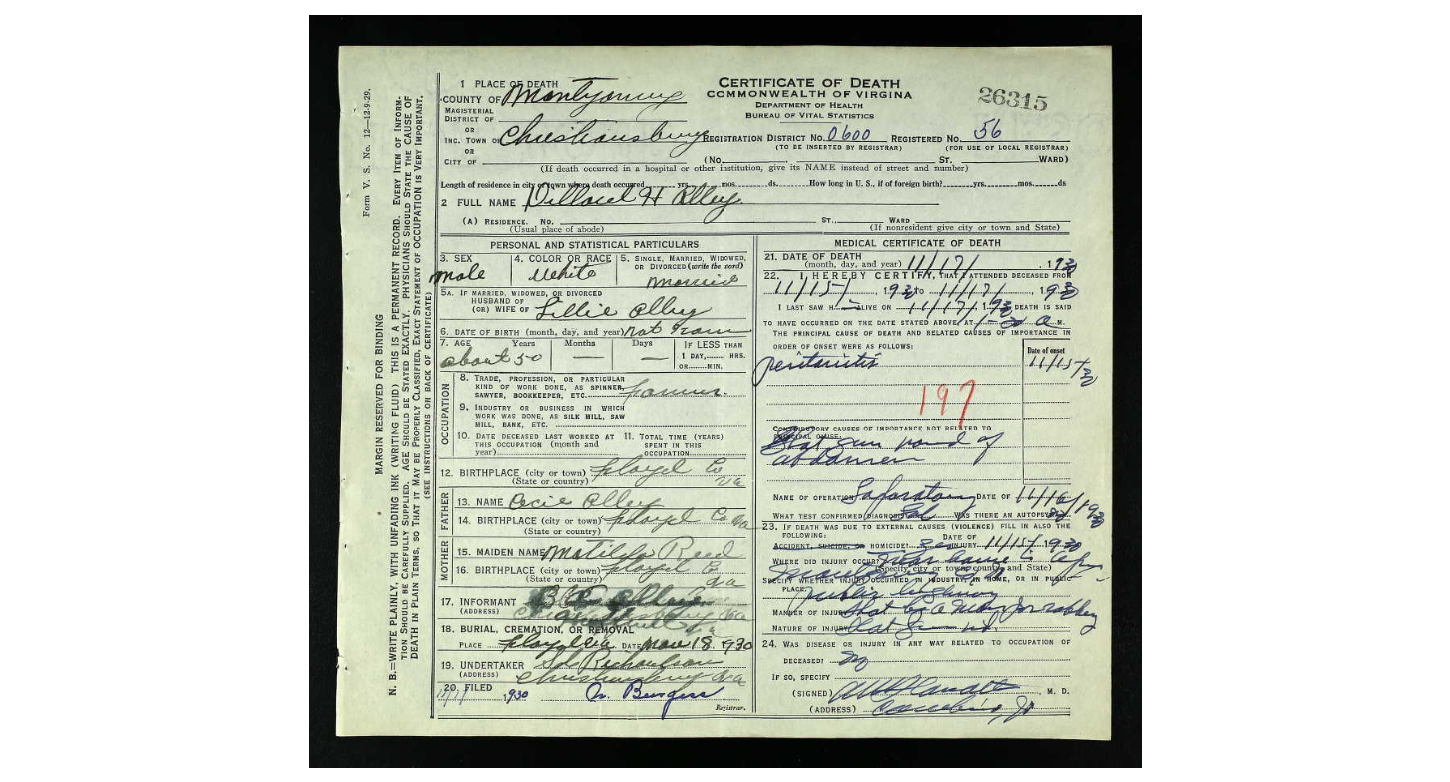 Form V. S. No. 12—12-9-29.
MARGIN RESERVED FOR BINDING
N. B.—WRITE PLAINLY, WITH UNFADING INK (WRITING FLUID) THIS IS A PERMANENT RECORD. EVERY ITEM OF INFORM-
TION SHOULD BE CAREFULLY SUPPLIED. AGE SHOULD BE STATED EXACTLY. PHYSICIANS SHOULD STATE THE CAUSE OF
DEATH IN PLAIN TERMS, SO THAT IT MAY BE PROPERLY CLASSIFIED. EXACT STATEMENT OF OCCUPATION IS VERY IMPORTANT.
(SEE INSTRUCTIONS ON BACK OF CERTIFICATE)
1 PLACE OF DEATH
COUNTY OF Montgomery
MAGISTERIAL
DISTRICT OF
OR
INC. TOWN OF Christiansburg
OR
CITY OF
CERTIFICATE OF DEATH
COMMONWEALTH OF VIRGINA
DEPARTMENT OF HEALTH
BUREAU OF VITAL STATISTICS
26315
REGISTRATION DISTRICT No. 0600 REGISTERED No. 56
(TO BE INSERTED BY REGISTRAR) (FOR USE OF LOCAL REGISTRAR)
(No. ST. WARD)
(If death occurred in a hospital or other institution, give its NAME instead of street and number)
Length of residence in city or town where death occurred yrs. mos. ds. How long in U. S., if of foreign birth? yrs. mos. ds
2 FULL NAME Dillard H Alley
(A) RESIDENCE. No. ST., WARD
(Usual place of abode) (If nonresident give city or town and State)
PERSONAL AND STATISTICAL PARTICULARS
3. SEX male
4. COLOR OR RACE White
5. SINGLE, MARRIED, WIDOWED, OR DIVORCED (write the word) married
5A. IF MARRIED, WIDOWED, OR DIVORCED
HUSBAND OF
(OR) WIFE OF Lillie Alley
6. DATE OF BIRTH (month, day, and year) not known
7. AGE Years Months Days IF LESS THAN
about 50 — — 1 DAY, HRS.
OR MIN.
OCCUPATION
8. TRADE, PROFESSION, OR PARTICULAR
KIND OF WORK DONE, AS SPINNER,
SAWYER, BOOKKEEPER, ETC. farmer
9. INDUSTRY OR BUSINESS IN WHICH
WORK WAS DONE, AS SILK MILL, SAW
MILL, BANK, ETC.
10. DATE DECEASED LAST WORKED AT THIS OCCUPATION (month and year)
11. TOTAL TIME (YEARS) SPENT IN THIS OCCUPATION
12. BIRTHPLACE (city or town) Floyd Co
(State or country) Va
FATHER
13. NAME Alley
14. BIRTHPLACE (city or town) Floyd Co Va
(State or country)
MOTHER
15. MAIDEN NAME Matilda Reed
16. BIRTHPLACE (city or town) Floyd Co
(State or country) Va
17. INFORMANT Alley
(ADDRESS)
18. BURIAL, CREMATION, OR REMOVAL
PLACE Floyd DATE Nov 18 1930
19. UNDERTAKER Richardson
(ADDRESS) Christiansburg Va
20. FILED 1930 Burgess
Registrar.
MEDICAL CERTIFICATE OF DEATH
21. DATE OF DEATH
(month, day, and year) 11/17/, 1930
22. I HEREBY CERTIFY, THAT I ATTENDED DECEASED FROM
11/15/, 1930 to 11/17/, 1930
I LAST SAW H— ALIVE ON 11/17/, 1930 DEATH IS SAID
TO HAVE OCCURRED ON THE DATE STATED ABOVE, AT a M.
THE PRINCIPAL CAUSE OF DEATH AND RELATED CAUSES OF IMPORTANCE IN
ORDER OF ONSET WERE AS FOLLOWS:
Date of onset
peritonitis 11/15/30
197
CONTRIBUTORY CAUSES OF IMPORTANCE NOT RELATED TO
PRINCIPAL CAUSE:
Shot gun wound of
abdomen
NAME OF OPERATION Laparotomy DATE OF 11/16/1930
WHAT TEST CONFIRMED DIAGNOSIS? WAS THERE AN AUTOPSY?
23. IF DEATH WAS DUE TO EXTERNAL CAUSES (VIOLENCE) FILL IN ALSO THE
FOLLOWING:
ACCIDENT, SUICIDE, OR HOMICIDE? DATE OF INJURY 11/15/ 1930
WHERE DID INJURY OCCUR? near home
(Specify city or town, county, and State)
SPECIFY WHETHER INJURY OCCURRED IN INDUSTRY, IN HOME, OR IN PUBLIC
PLACE. public highway
MANNER OF INJURY Shot by a
NATURE OF INJURY Shot gun wd.
24. WAS DISEASE OR INJURY IN ANY WAY RELATED TO OCCUPATION OF
DECEASED? no
IF SO, SPECIFY
(SIGNED) M. D.
(ADDRESS)